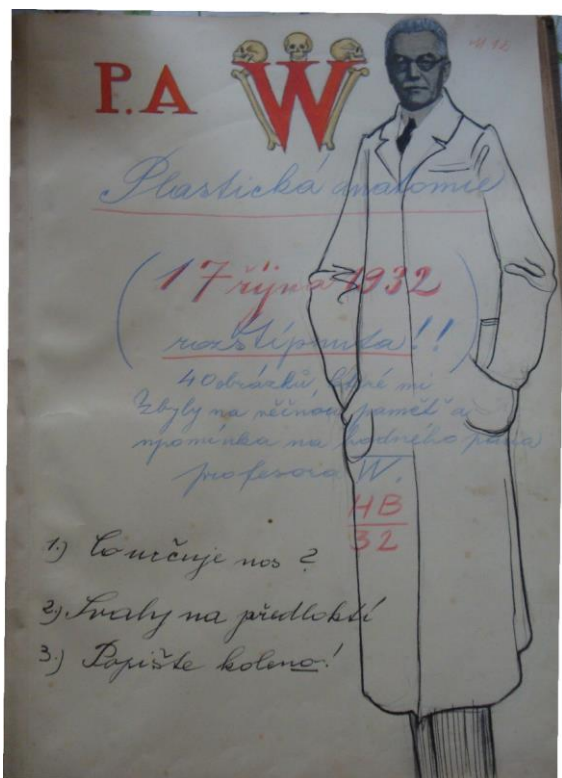 P.A W
Plastická anatomie
(17 října 1932
rozštípnuta!!)
40 obrázků, které mi
zbyly na věčnou paměť a
upomínka na hodného pana
profesora W.
HB
32
1.) Co určuje nos?
2.) Svaly na předloktí
3.) Popište koleno!